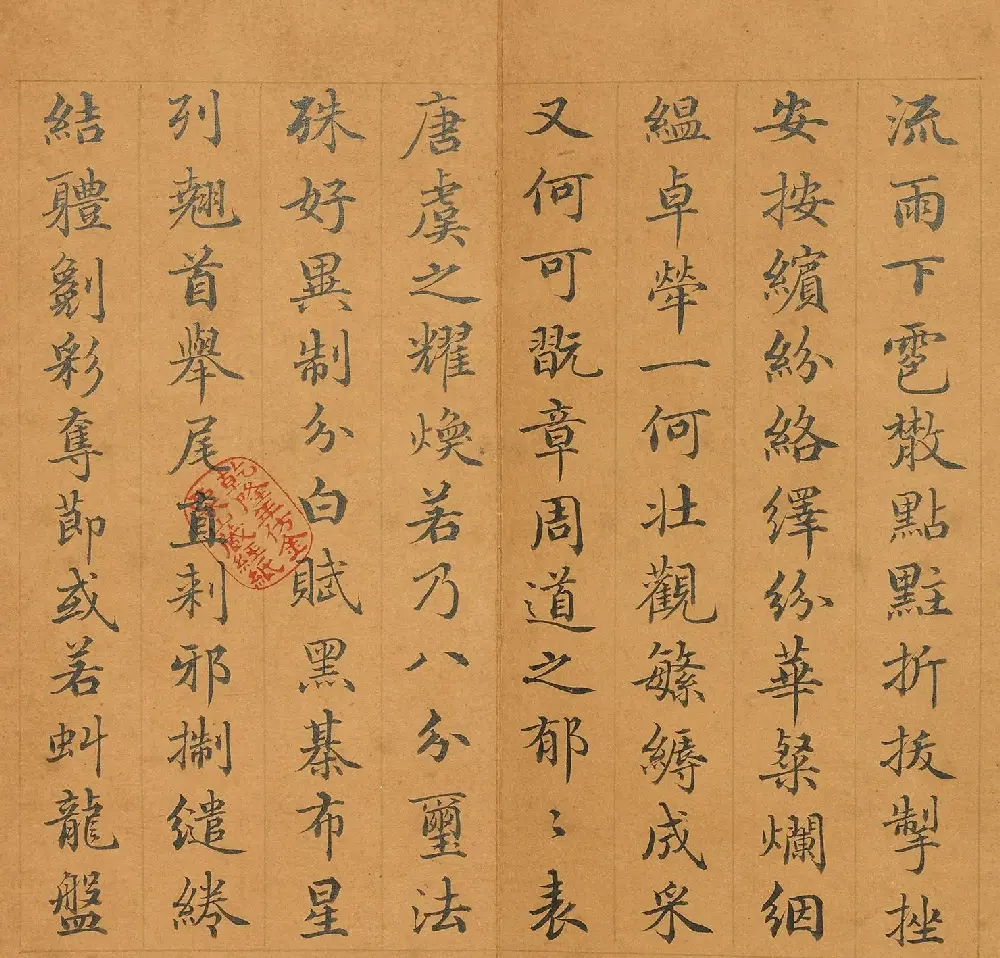 流雨下雹散點䵞折拔掣挫
安按繽紛絡繹紛華粲爛絪
縕卓犖一何壯觀繁縟成采
又何可翫章周道之郁〻表
唐虞之耀煥若乃八分璽法
殊好異制分白賦黑棊布星
列翹首舉尾直刺邪掣繾綣
結體劖彩奪節或若虯龍盤
乾隆年仿金
粟山藏經紙